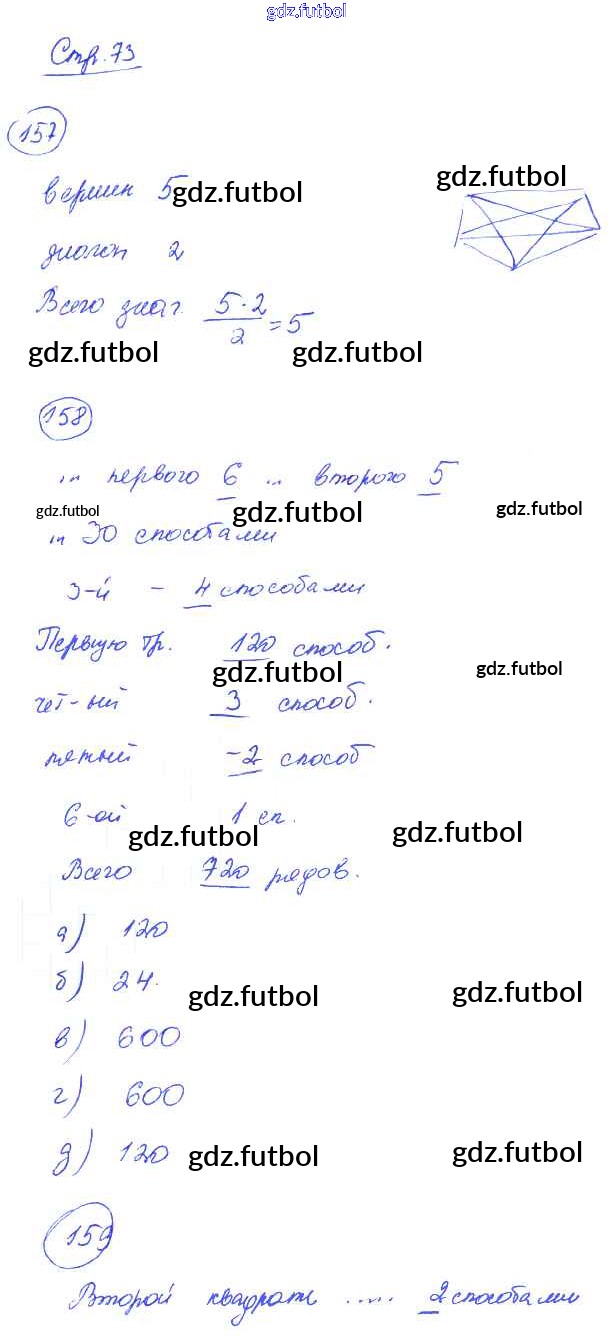 gdz.futbol
Стр. 73
157
вершин 5 gdz.futbol
gdz.futbol
диагон 2
Всего диаг. 5·2/2 = 5
gdz.futbol gdz.futbol
158
первого 6 ... второго 5
gdz.futbol gdz.futbol gdz.futbol
30 способами
3-й - 4 способами
Первую тр. 120 способ.
gdz.futbol gdz.futbol
чет-ый 3 способ.
пятый -2 способ
6-ой 1 сп.
gdz.futbol gdz.futbol
Всего 720 рядов.
а) 120
б) 24.
gdz.futbol gdz.futbol
в) 600
г) 600
д) 120
gdz.futbol gdz.futbol
159
Второй квадрат .... 2 способами